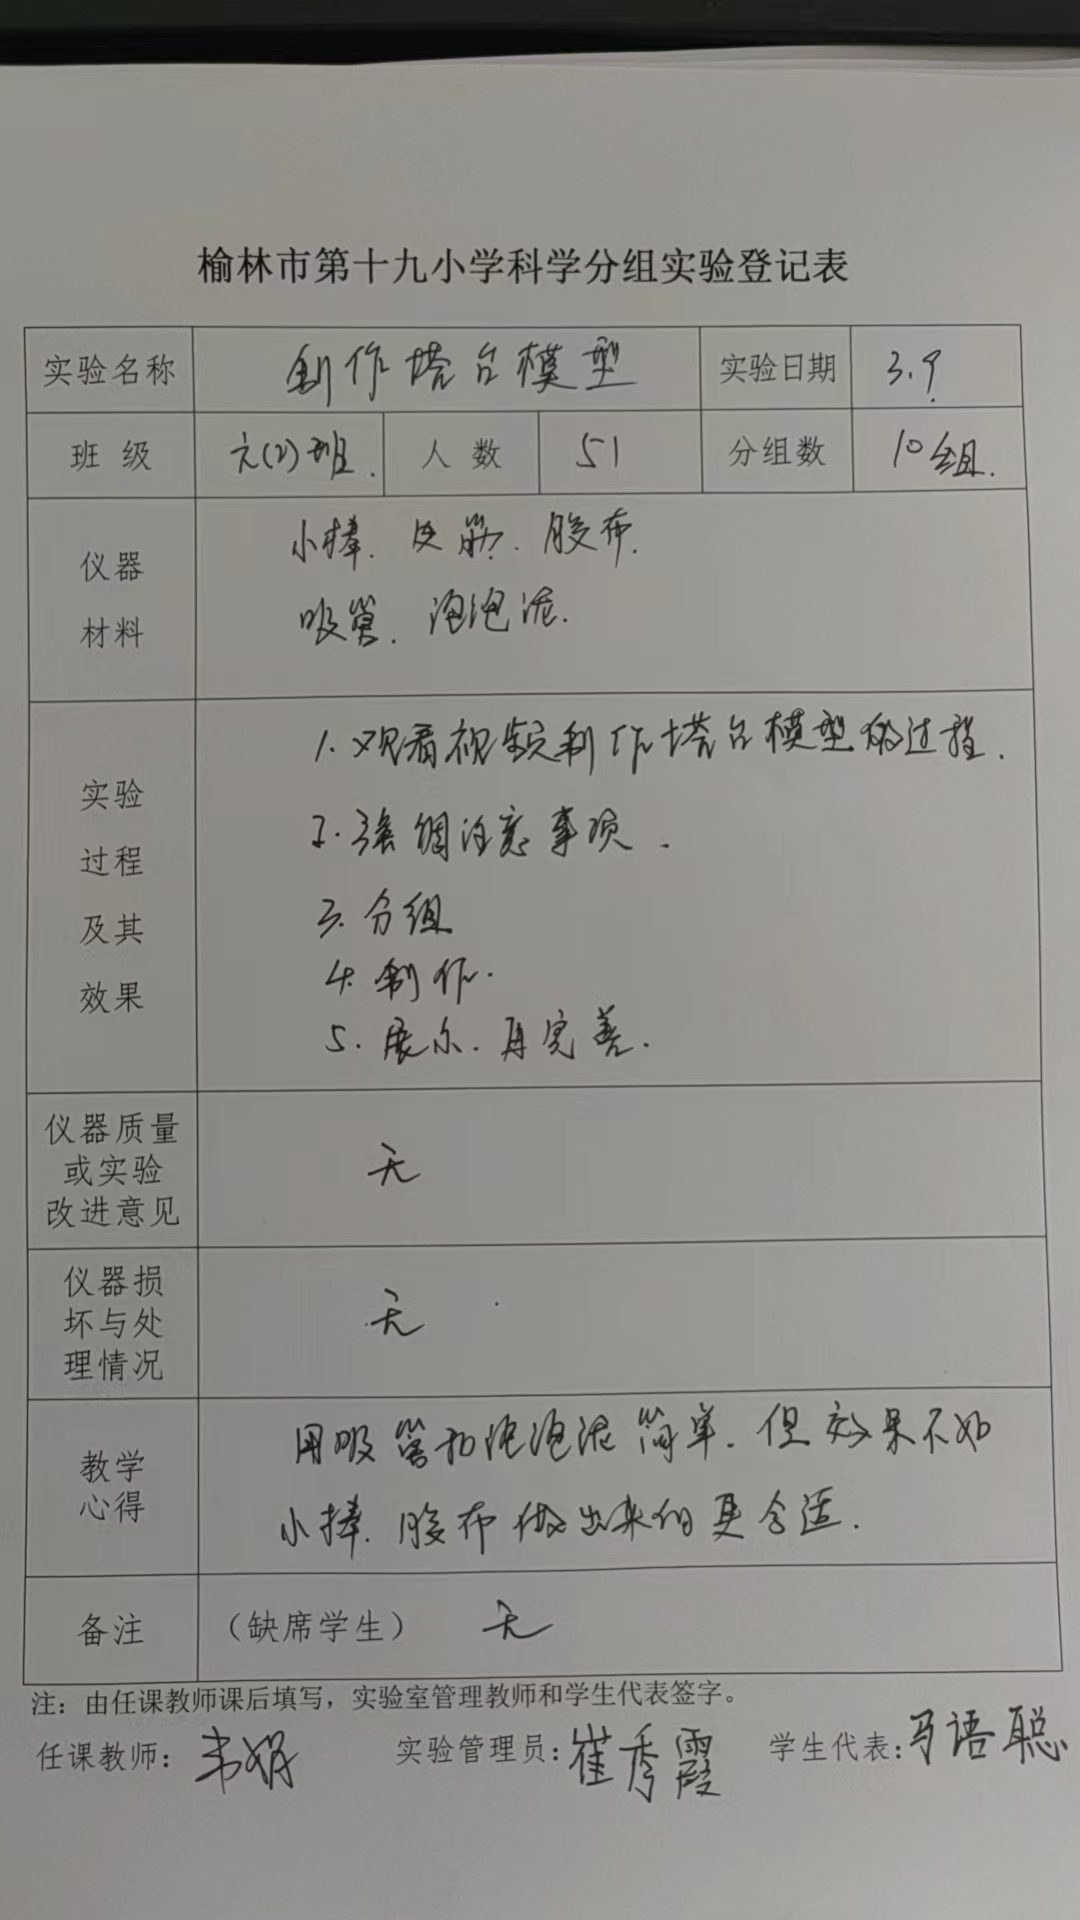 榆林市第十九小学科学分组实验登记表
实验名称 制作塔台模型 实验日期 3.9
班 级 六(2)班. 人 数 51 分组数 10组.
仪器
材料
小棒. 皮筋. 胶布.
吸管. 泡泡泥.
实验
过程
及其
效果
1.观看视频制作塔台模型的过程.
2.强调注意事项.
3.分组
4.制作.
5.展示.再完善.
仪器质量
或实验
改进意见
无
仪器损
坏与处
理情况
无
教学
心得
用吸管和泡泡泥简单.但效果不如
小棒.胶布做出来的更合适.
备注 (缺席学生) 无
注：由任课教师课后填写，实验室管理教师和学生代表签字。
任课教师：韦娟 实验管理员：崔秀霞 学生代表：马语聪